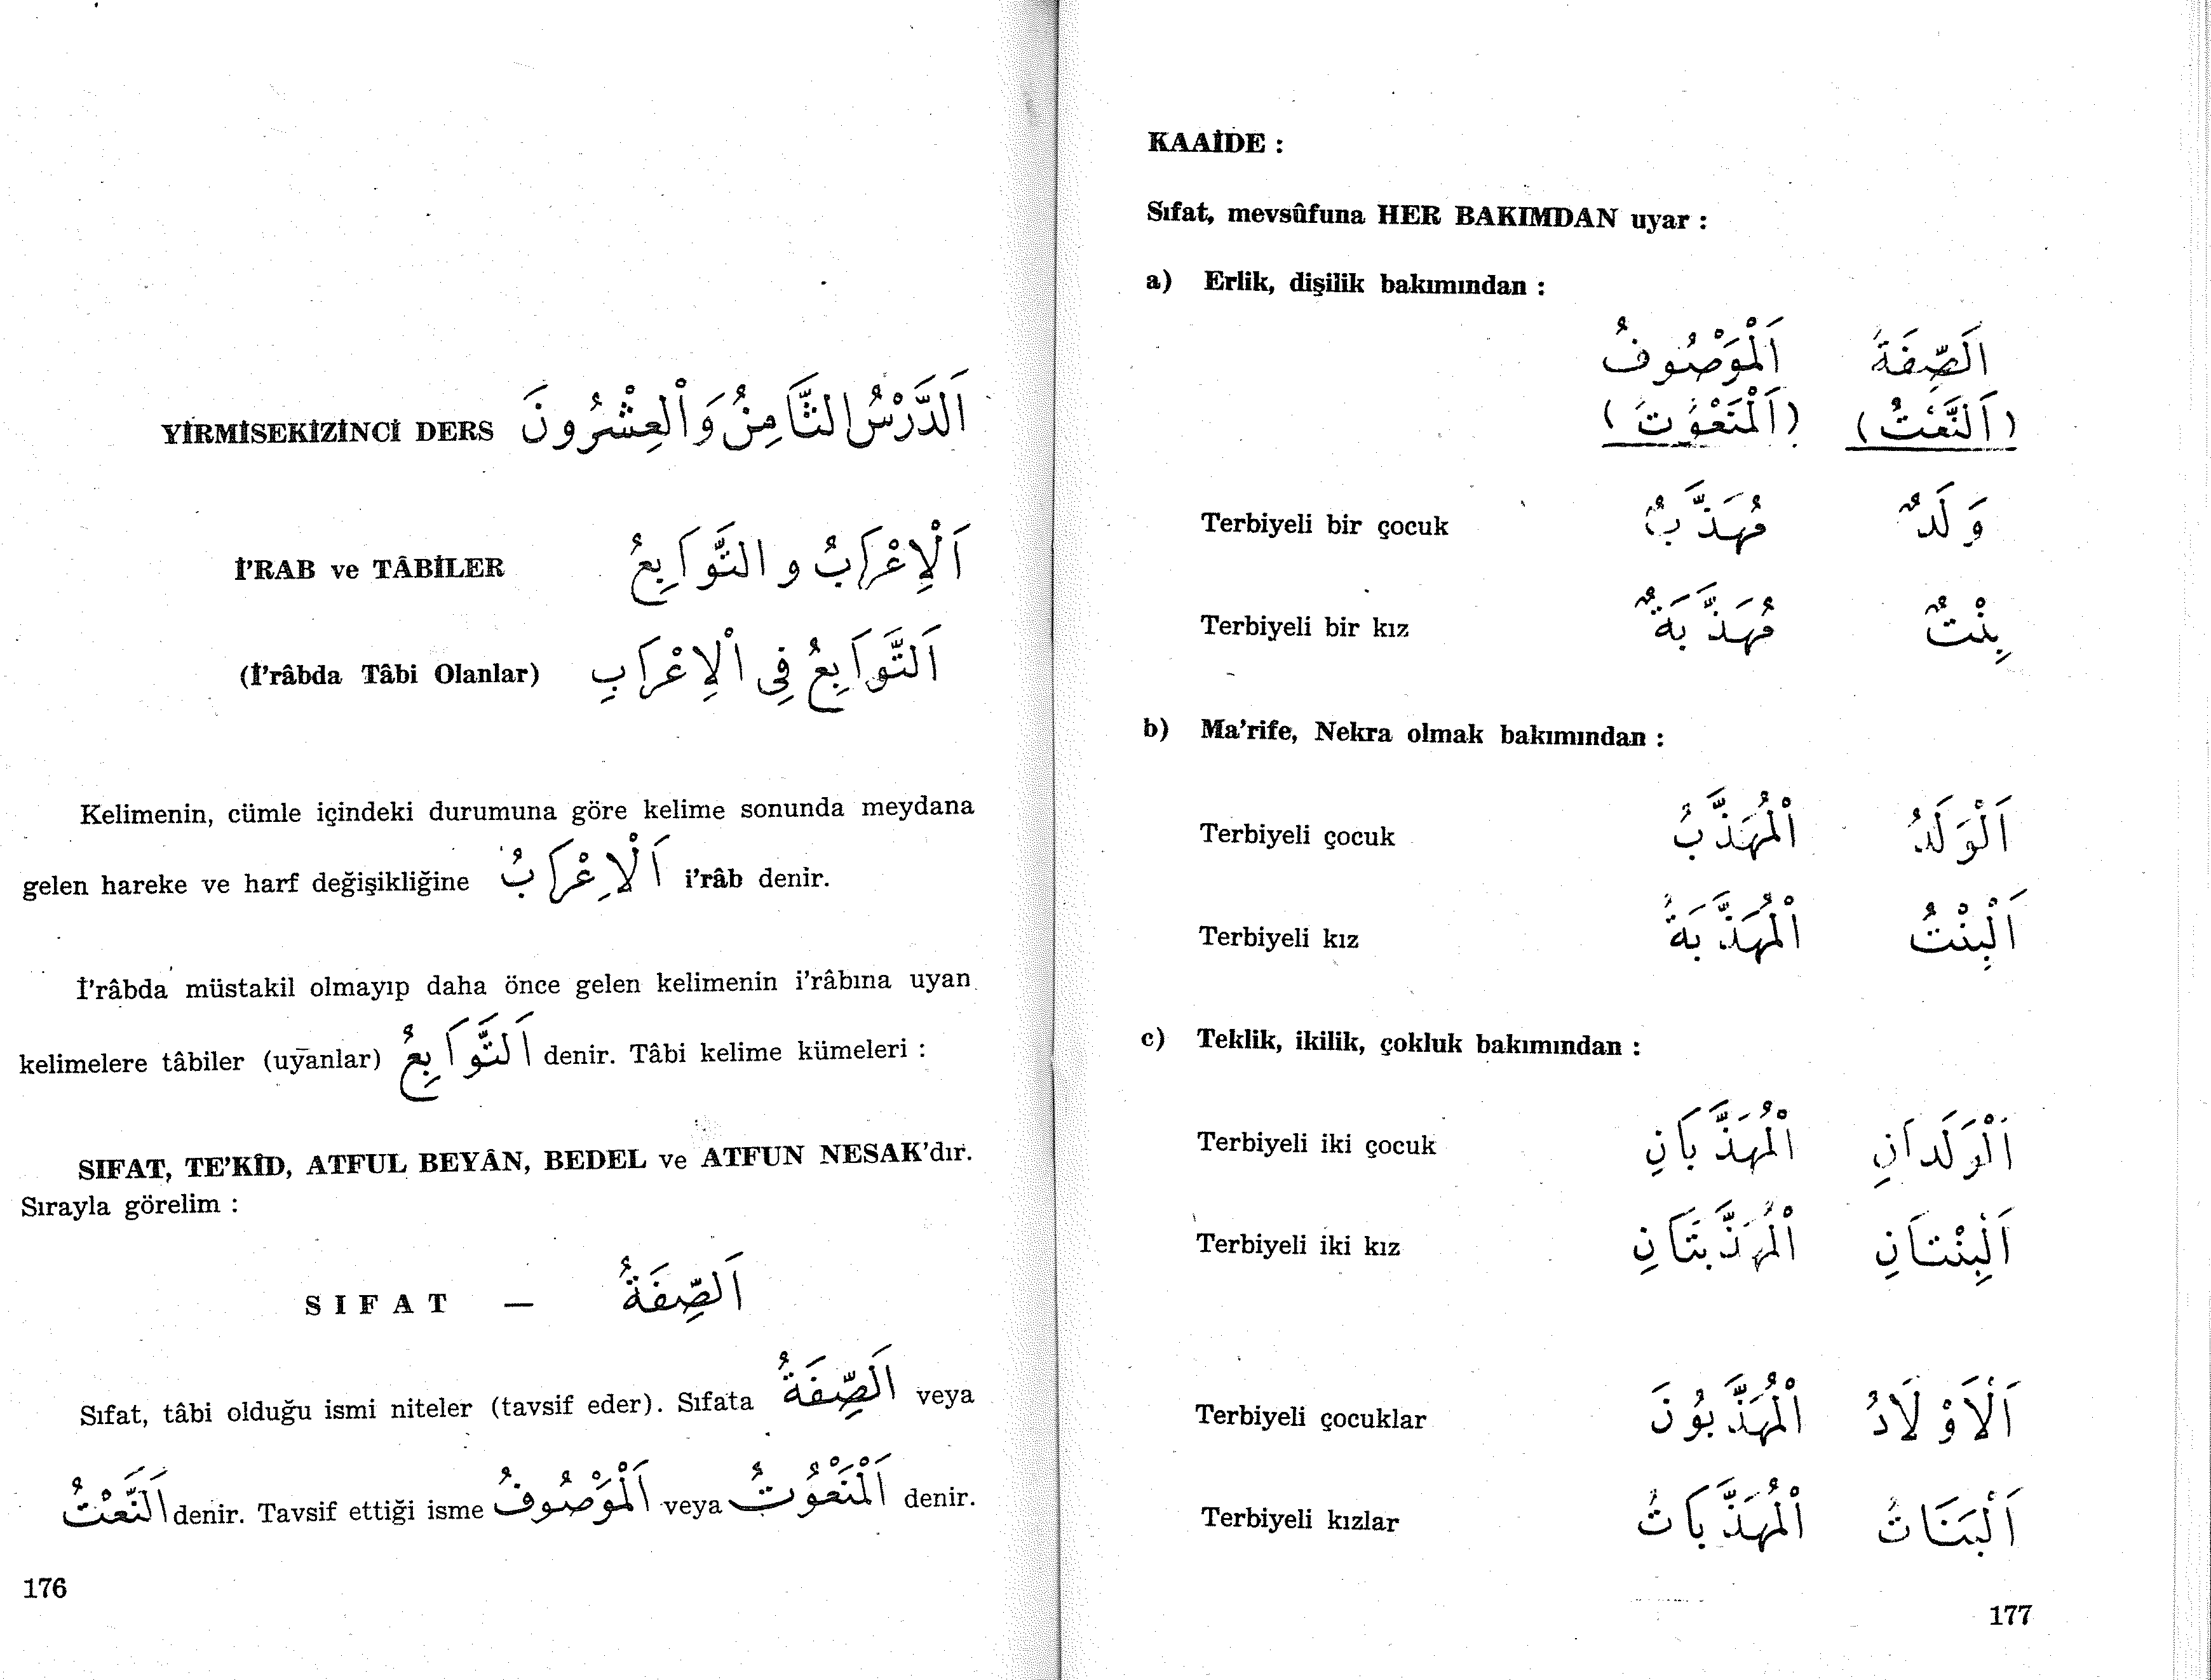 YİRMİSEKİZİNCİ DERS اَلدَّرْسُ الثَّامِنُ وَالْعِشْرُونَ
İ'RAB ve TÂBİLER اَلْاِعْرَابُ و التَّوَابِعُ
(İ'râbda Tâbi Olanlar) اَلتَّوَابِعُ فِى الْاِعْرَابِ
Kelimenin, cümle içindeki durumuna göre kelime sonunda meydana
gelen hareke ve harf değişikliğine اَلْاِعْرَابُ i'râb denir.
İ'râbda müstakil olmayıp daha önce gelen kelimenin i'râbına uyan
kelimelere tâbiler (uyanlar) اَلتَّوَابِعُ denir. Tâbi kelime kümeleri :
SIFAT, TE'KÎD, ATFUL BEYÂN, BEDEL ve ATFUN NESAK'dır.
Sırayla görelim :
SIFAT — اَلصِّفَةُ
Sıfat, tâbi olduğu ismi niteler (tavsif eder). Sıfata اَلصِّفَةُ veya
اَلنَّعْتُ denir. Tavsif ettiği isme اَلْمَوْصُوفُ veya اَلْمَنْعُوتُ denir.
176
KAAİDE :
Sıfat, mevsûfuna HER BAKIMDAN uyar :
a) Erlik, dişilik bakımından :
اَلْمَوْصُوفُ اَلصِّفَةُ
(اَلْمَنْعُوتُ) (اَلنَّعْتُ)
Terbiyeli bir çocuk مُهَذَّبٌ وَلَدٌ
Terbiyeli bir kız مُهَذَّبَةٌ بِنْتٌ
b) Ma'rife, Nekra olmak bakımından :
Terbiyeli çocuk الْمُهَذَّبُ اَلْوَلَدُ
Terbiyeli kız الْمُهَذَّبَةُ اَلْبِنْتُ
c) Teklik, ikilik, çokluk bakımından :
Terbiyeli iki çocuk الْمُهَذَّبَانِ اَلْوَلَدَانِ
Terbiyeli iki kız الْمُهَذَّبَتَانِ اَلْبِنْتَانِ
Terbiyeli çocuklar الْمُهَذَّبُونَ اَلْاَوْلَادُ
Terbiyeli kızlar الْمُهَذَّبَاتُ اَلْبَنَاتُ
177